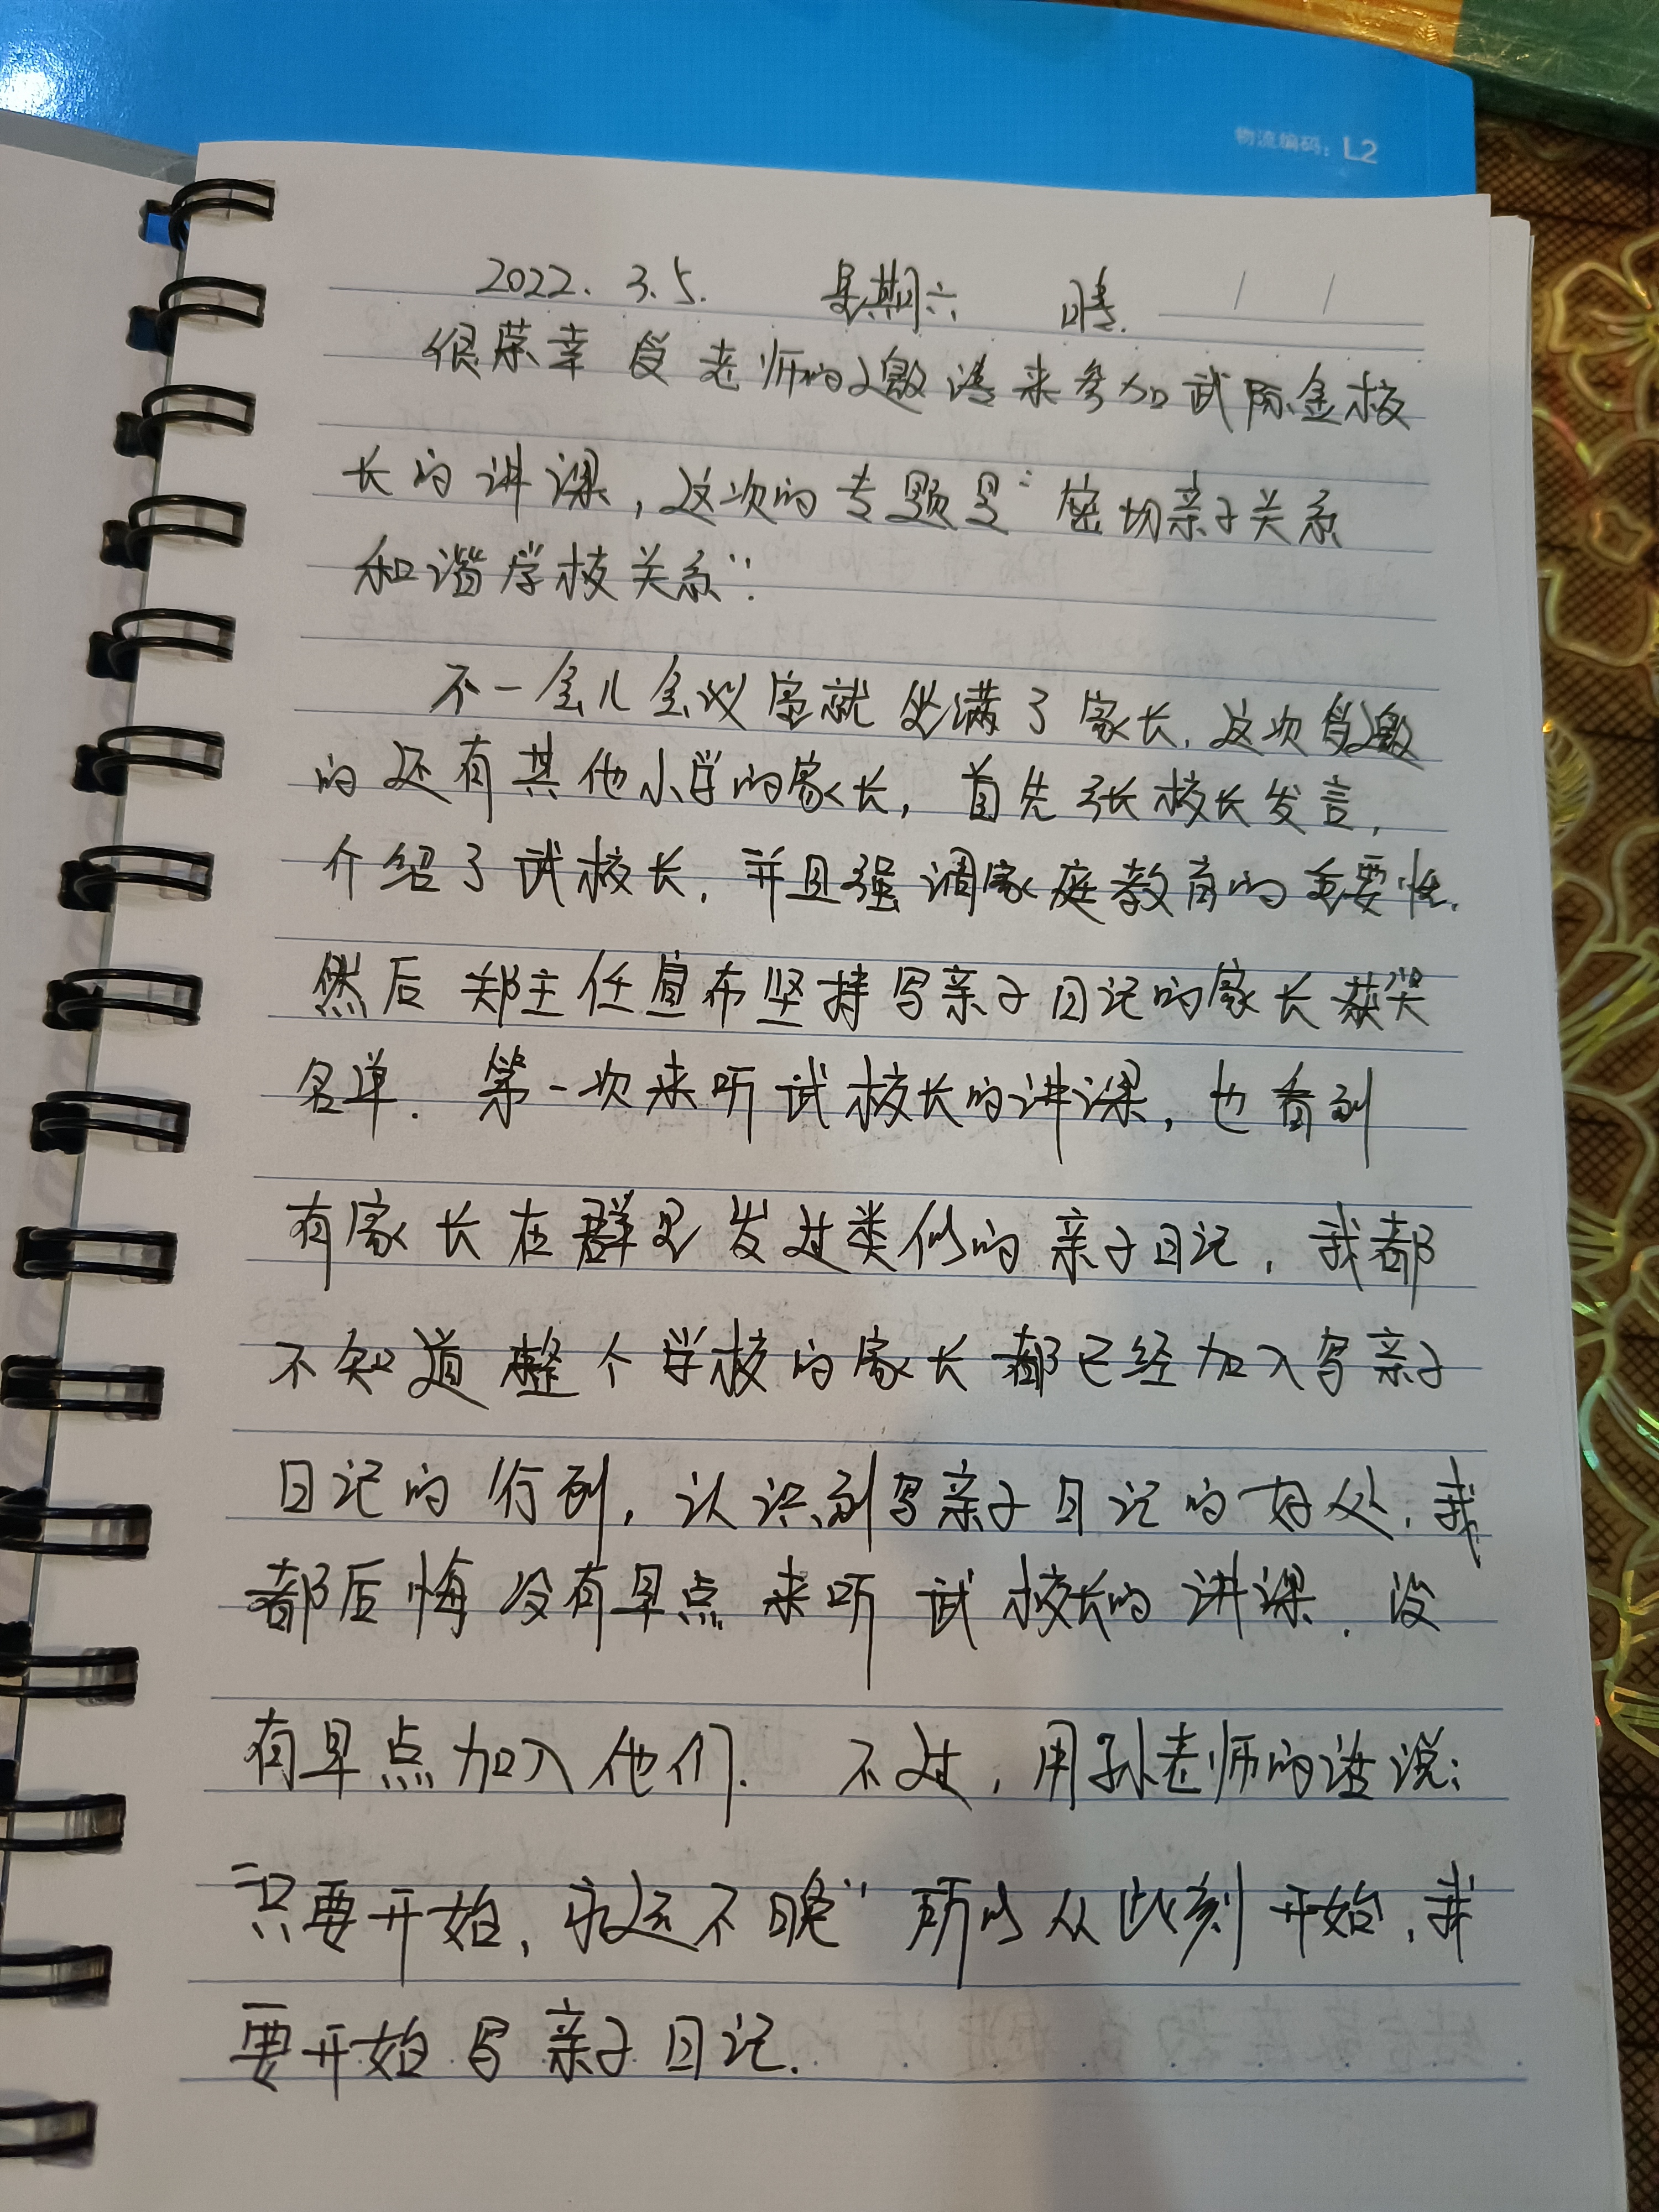 物流编码：L2
2022.3.5. 星期六 晴.
很荣幸受老师的邀请来参加武际金校
长的讲课，这次的专题是“密切亲子关系
和谐学校关系”.
不一会儿会议室就坐满了家长，这次受邀
的还有其他小学的家长，首先张校长发言，
介绍了武校长，并且强调家庭教育的重要性.
然后郑主任宣布坚持写亲子日记的家长获奖
名单. 第一次来听武校长的讲课，也看到
有家长在群里发过类似的亲子日记，我都
不知道整个学校的家长都已经加入写亲子
日记的行列，认识到写亲子日记的好处，我
都后悔没有早点来听武校长的讲课. 没
有早点加入他们. 不过，用孙老师的话说：
“只要开始，永远不晚”所以从此刻开始，我
要开始写亲子日记.